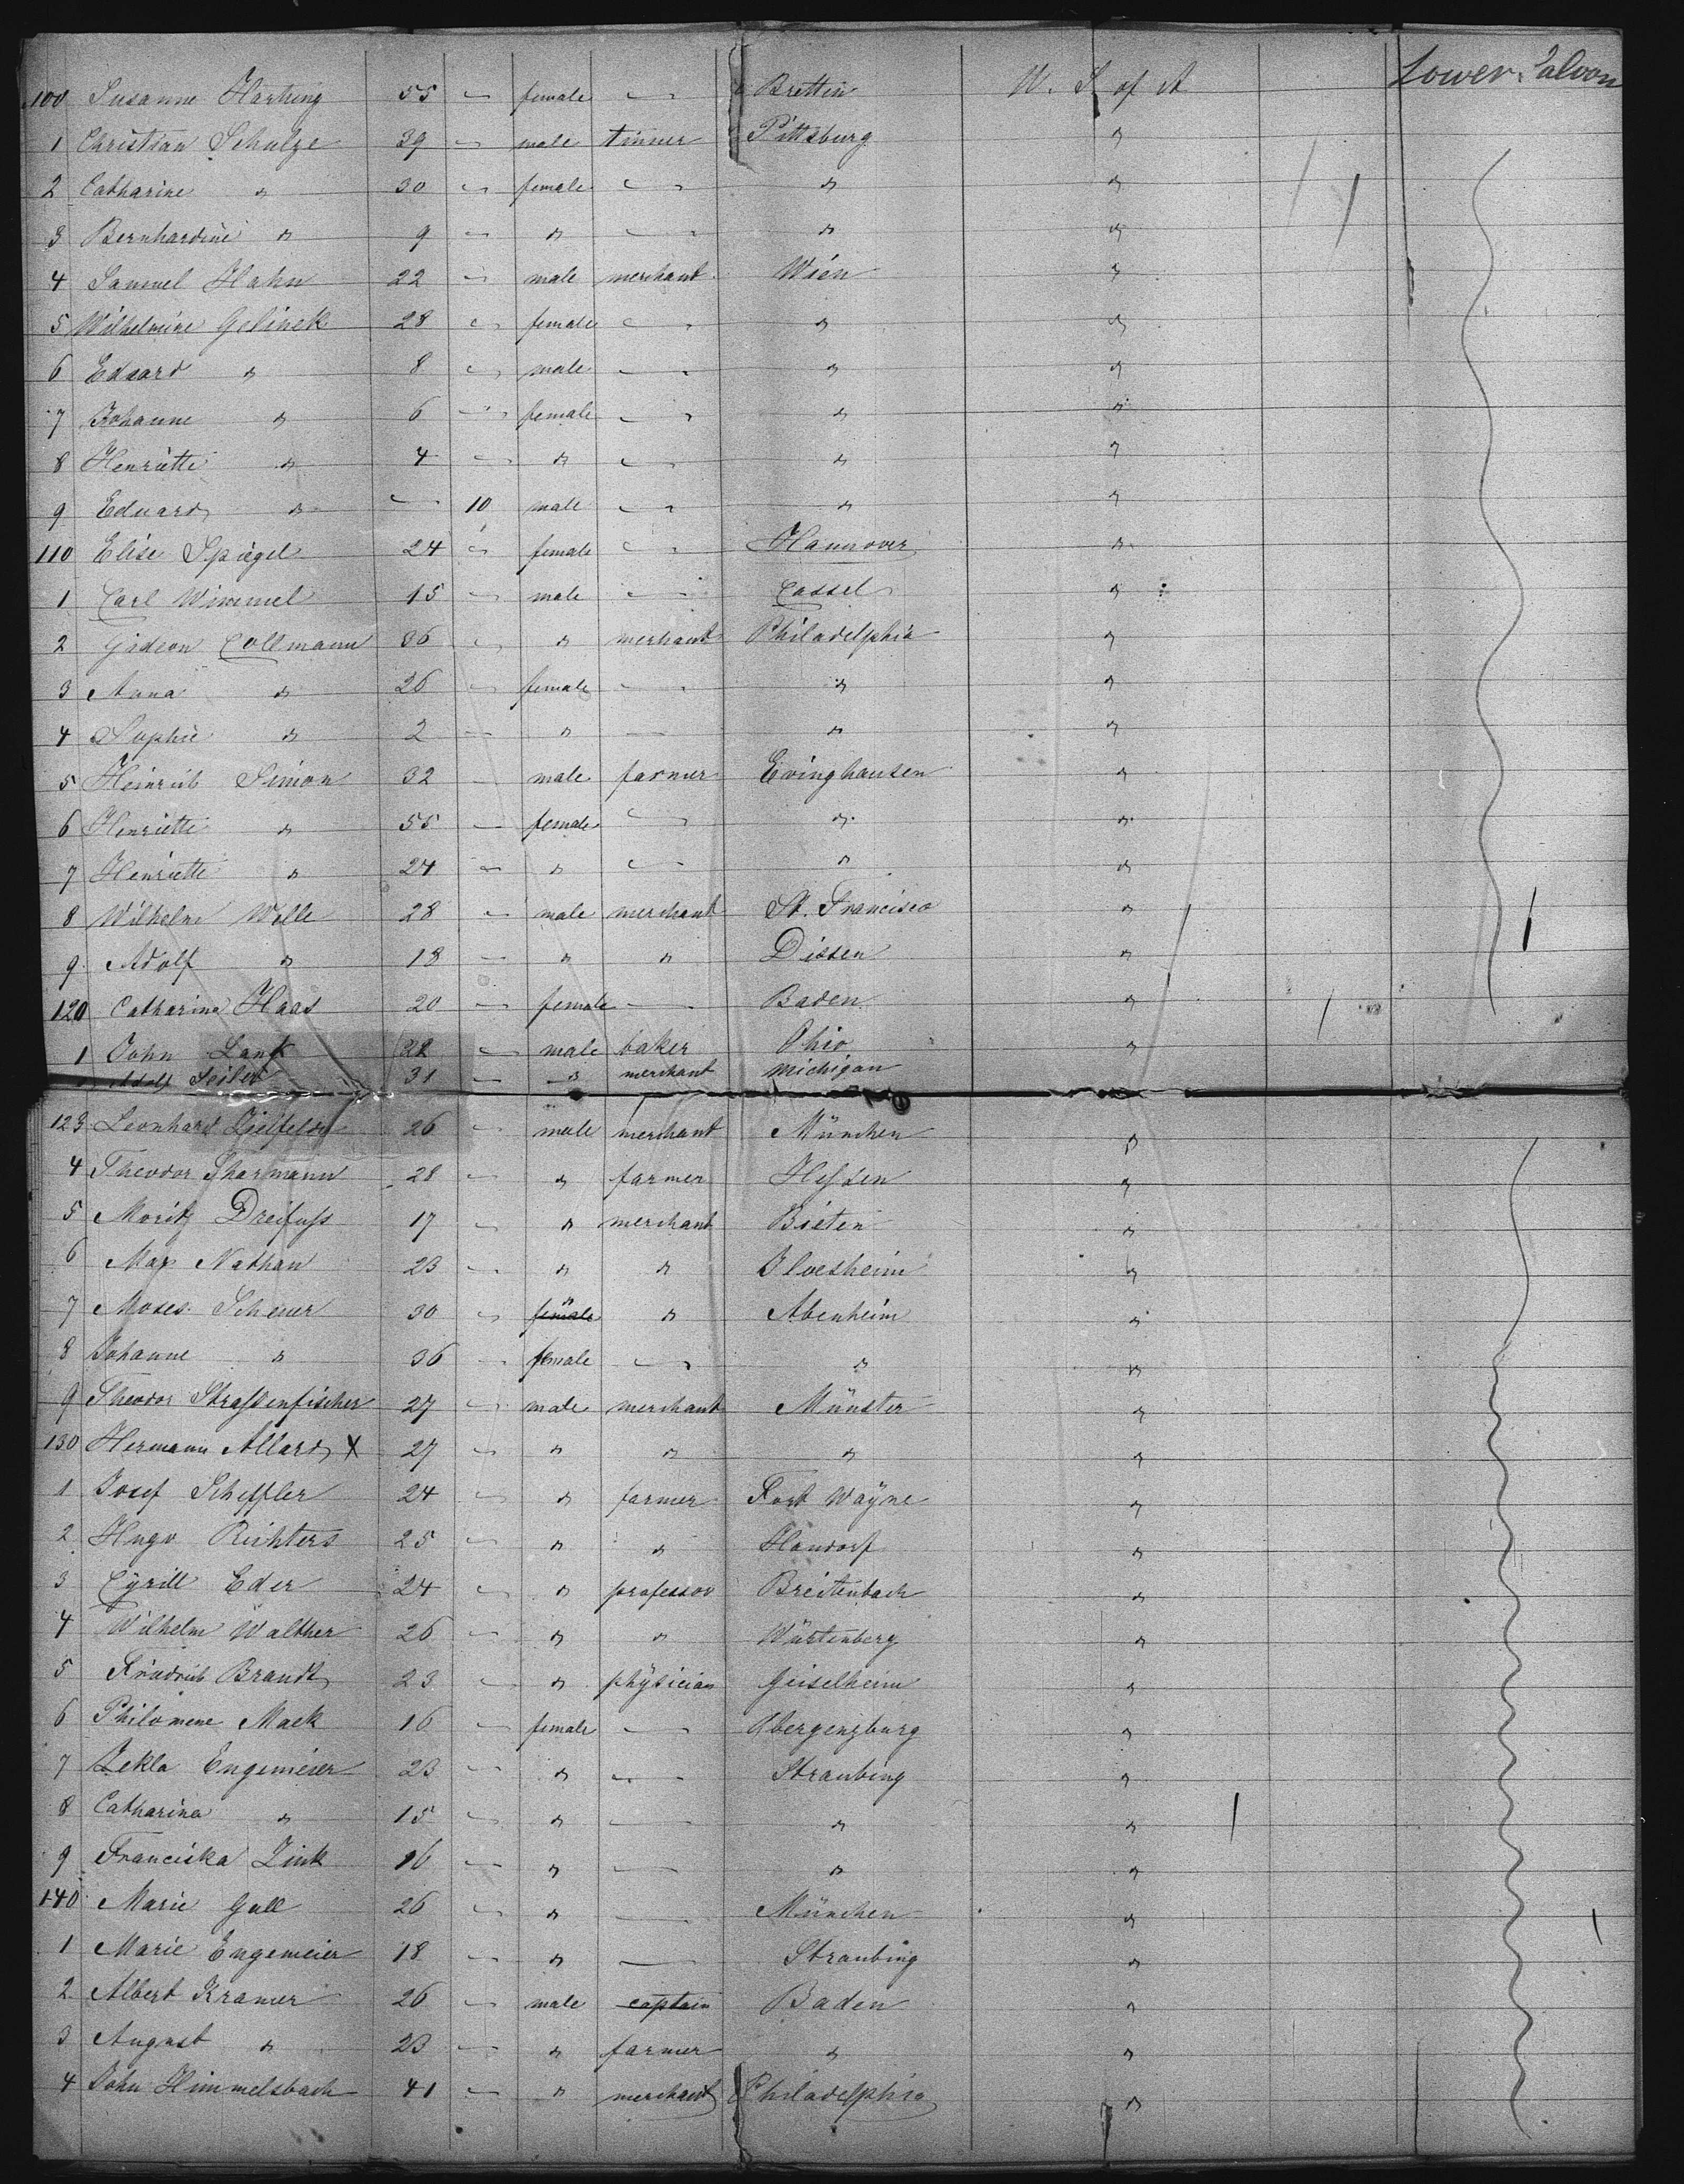 100 Susanne Hartung 55 — female — Brettin U. S. of A Lower Saloon
1 Christian Schulze 39 — male tinner Pittsburg "
2 Catharine " 30 — female — " "
3 Bernhardine " 9 — " — " "
4 Samuel Hahn 22 — male merchant Wien "
5 Wilhelmine Gelinek 28 — female — " "
6 Eduard " 8 — male — " "
7 Johanne " 6 — female — " "
8 Henriette " 4 — " — " "
9 Eduard " — 10 male — " "
110 Elise Spiegel 24 — female — Hannover "
1 Carl Wimmel 15 — male — Cassel "
2 Gideon Collmann 36 — " merchant Philadelphia "
3 Anna " 26 — female — " "
4 Sophie " 2 — " — " "
5 Heinrich Simon 32 — male farmer Evinghausen "
6 Henriette " 55 — female — " "
7 Henriette " 24 — " — " "
8 Wilhelm Wille 28 — male merchant St. Francisco "
9 Adolf " 18 — " " Dissen "
120 Catharina Haas 20 — female — Baden "
1 John Lank 28 — male baker Ohio "
Adolf Seiler 31 — " merchant Michigan
123 Leonhard 26 — male merchant München "
4 Theodor Sharmann 28 — " farmer Hessen "
5 Moritz Dreifuss 17 — " merchant Bieten "
6 Max Nathan 23 — " " Ilvesheim "
7 Moses Scheuer 30 — female " " Abenheim "
8 Johanne " 36 — female — " "
9 Theodor Strassenfischer 27 — male merchant Münster "
130 Hermann Allard X 27 — " " " "
1 Josef Scheffler 24 — " farmer Fort Wayne "
2 Hugo Richters 25 — " " Handorf "
3 Cyrill Eder 24 — " professor Breitenbach "
4 Wilhelm Walther 26 — " " Würtenberg "
5 Friedrich Brandt 23 — " physician Geiselheim "
6 Philomene Mack 16 — female — "
7 Tekla Engemeier 23 — " — Straubing "
8 Catharina " 15 — " — " "
9 Franciska Zink 16 — " — " "
140 Marie Gall 26 — " — München "
1 Marie Engemeier 18 — " — Straubing "
2 Albert Kramer 26 — male captain Baden "
3 August " 23 — " farmer " "
4 John Himmelsbach 41 — " merchant Philadelphia "